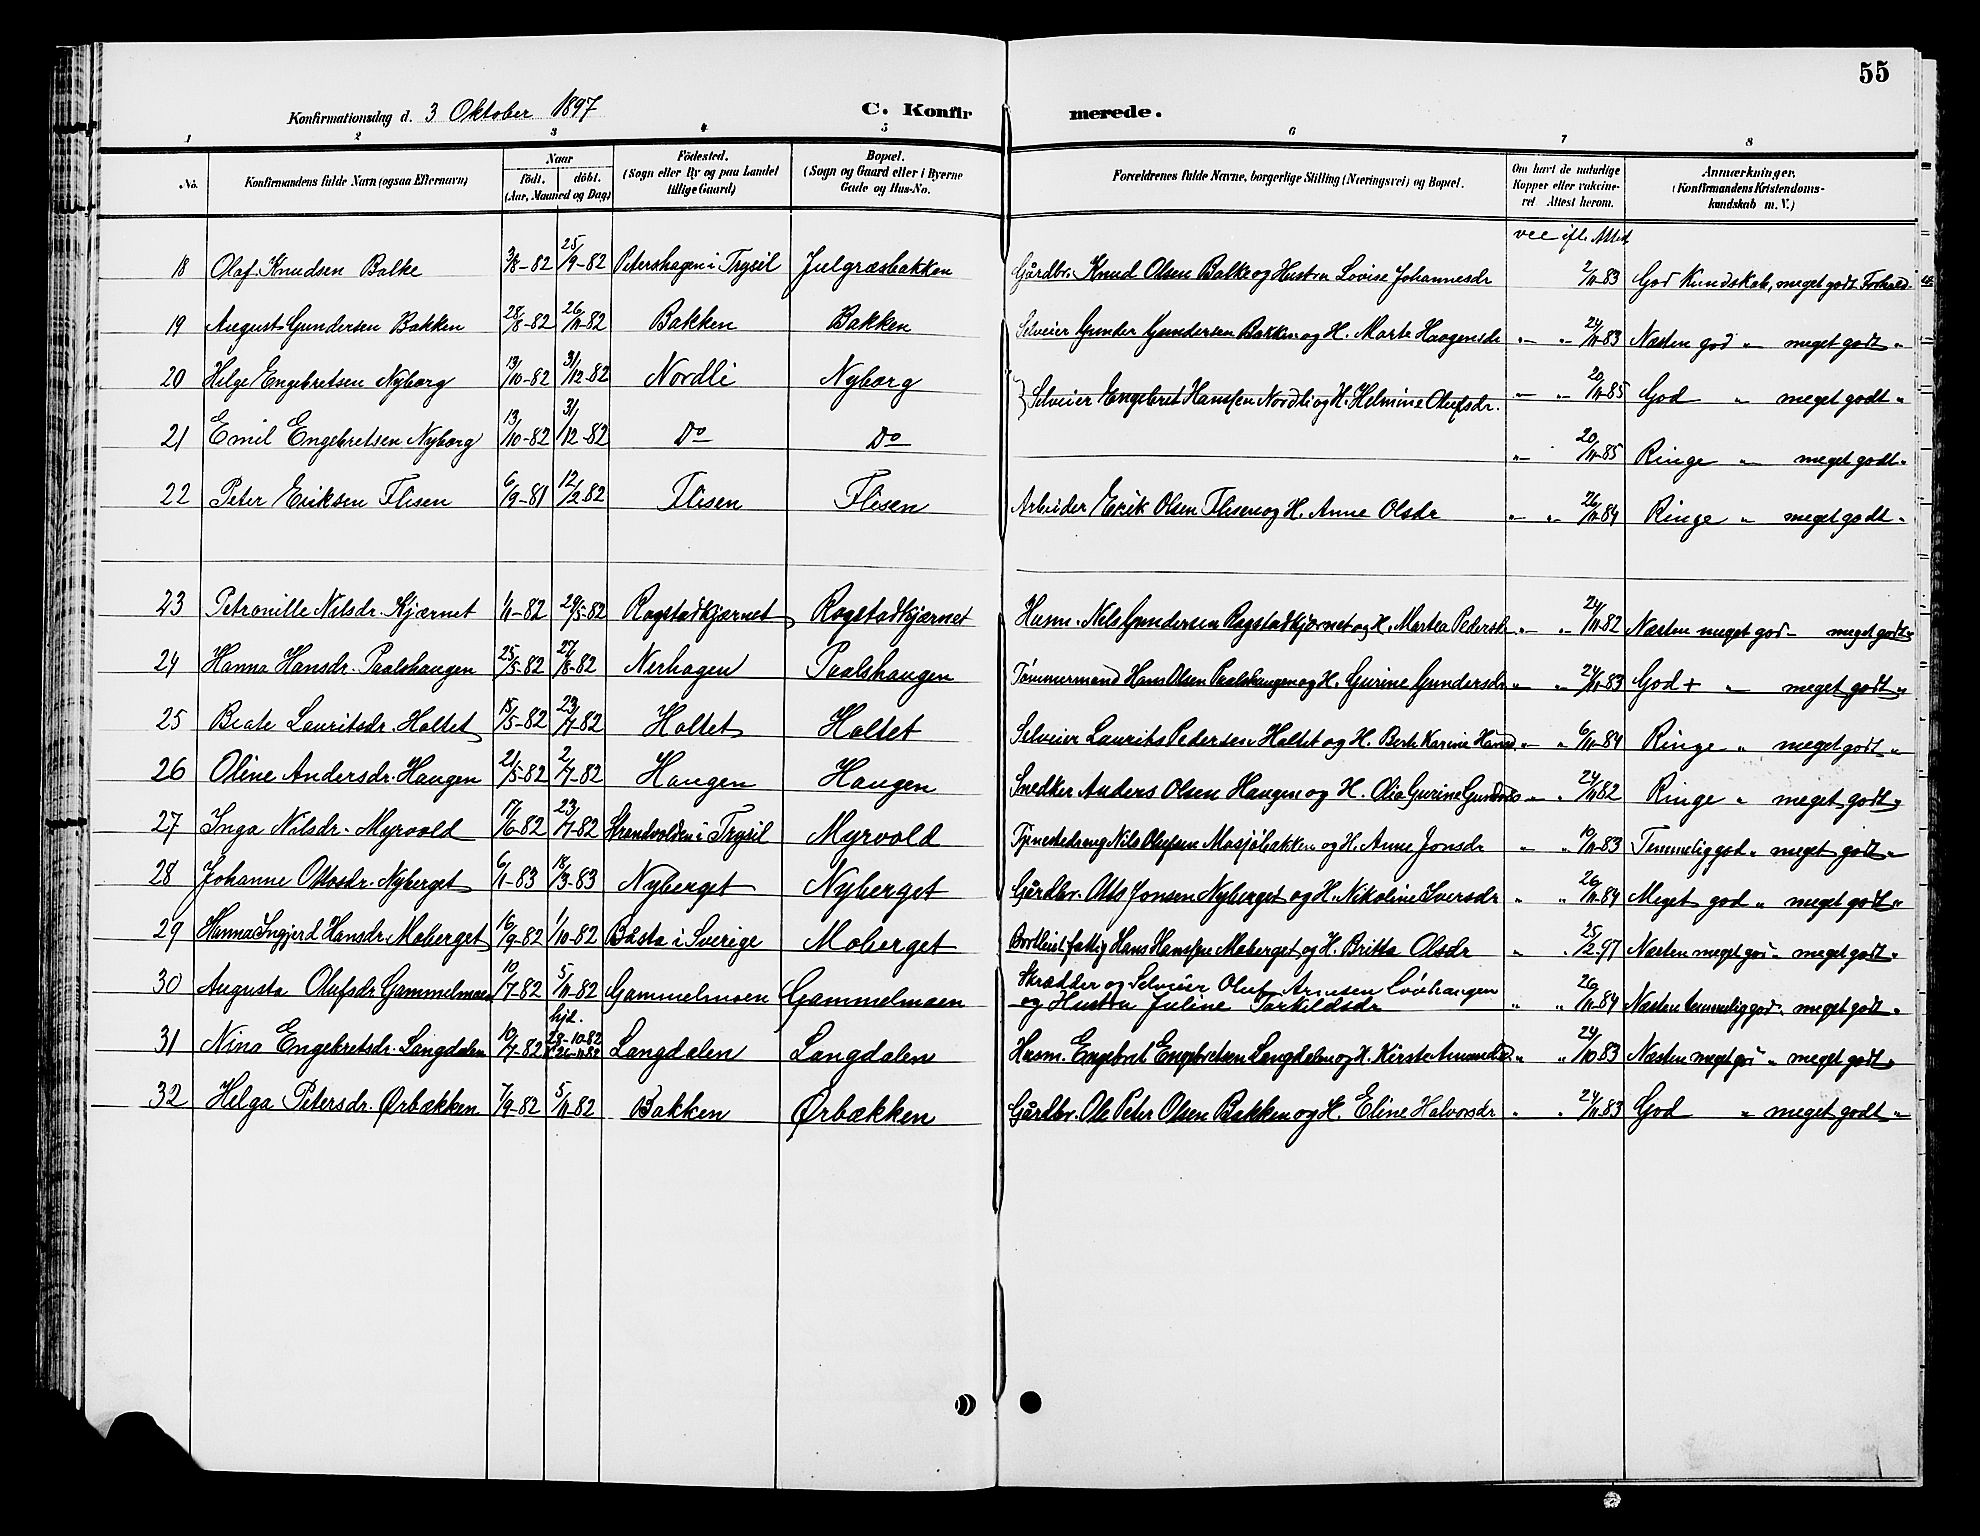 55
Konfirmationsdag d. 3 Oktober 1897 C. Konfir merede.
1 2 3 4 5 6 7 8
No. Konfirmandens fulde Navn (ogsaa Efternavn) Naar födt. döbt. (Aar, Maaned og Dag) Födested. (Sogn eller By og paa Landet tillige Gaard) Bopæl. (Sogn og Gaard eller i Byerne Gade og Hus-No. Forældrenes fulde Navne, borgerlige Stilling (Næringsvei) og Bopæl. Om havt de naturlige Kopper eller vakcineret. Attest herom. Anmærkninger. (Konfirmandens Kristendomskundskab m. V.)
vac ifl. Attest
18 Olaf Knudsen Balke 3/8-82 25/9-82 Petershagen i Trysil Julgræsbakken Gårdbr. Knud Olsen Balke og Hustru Lovise Johannesdr 2/11-83 God Kundskab, meget godt Forhold.
19 August Gundersen Bakken 28/8-82 26/11-82 Bakken Bakken Selveier Gunder Gundersen Bakken og H. Marte Haagensdr " " 24/11-83 Næsten god " meget godt "
20 Helge Engebretsen Nyborg 13/10-82 31/12-82 Nordli Nyborg Selveier Engebret Hanssen Nordli og H. Helmine Olufsdr. " " 20/11-85 God " meget godt "
21 Emil Engebretsen Nyborg 13/10-82 31/12-82 Do Do " 20/11-85 Ringe " meget godt "
22 Peter Eriksen Flisen 6/9-81 12/2-82 Flisen Flisen Arbeider Erik Olsen Flisen og H. Anne Olsdr " " 26/11-84 Ringe " meget godt "
23 Petronille Nilsdr. Kjærnet 1/11-82 29/5-82 Rogstadkjærnet Rogstadkjærnet Husm. Nils Gundersen Rogstadkjærnet og H. Martea Pedersdr " " 24/11-82 Næsten meget god " meget godt "
24 Hanna Hansdr. Paalshaugen 25/5-82 27/8-82 Nerhagen Paalshaugen Tømmermand Hans Olsen Paalshaugen og H. Gurine Gundersdr " " 24/11-83 God + " meget godt "
25 Beate Lauritsdr. Holtet 15/5-82 23/7-82 Holtet Holtet Selveier Laurits Pedersen Holtet og H. Berte Karine Hansd " " 6/11-84 Ringe " meget godt "
26 Oline Andersdr. Haugen 21/5-82 2/7-82 Haugen Haugen Snedker Anders Olsen Haugen og H. Olia Gurine " " 24/11-82 Ringe " meget godt "
27 Inga Nilsdr. Myrvold 17/6-82 23/7-82 Strandvolden i Trysil Myrvold Tjenestedreng Nils Olufsen Masjöbakken og H. Anne Jonsdr " " 19/11-83 Temmelig god " meget godt "
28 Johanne Ottosdr. Nyberget 6/1-83 18/3-83 Nyberget Nyberget Gårdbr. Otto Jonsen Nyberget og H. Nikoline Iversdr " " 26/11-84 Meget god " meget godt "
29 Hanna Ingjerd Hansdr. Moberget 16/9-82 1/10-82 Båsta i Sverige Moberget fattig Hans Hanssen Moberget og H. Britta Olsdr " " 25/2-97 Næsten meget god " meget godt "
30 Augusta Olufsdr. Gammelmoen 10/7-82 5/11-82 Gammelmoen Gammelmoen Skrædder og Selveier Oluf Arnesen Lövhaugen
og Hustru Juline Torkildsdr " " 26/11-84 Næsten temmelig god " meget godt "
31 Nina Engebretsdr. Langdalen 10/7-82 hjd. 28-10-82 26-11-82 Langdalen Langdalen Husm. Engebret Engebretsen Langdalen og H. Kirste Amundsd " " 24/10-83 Næsten meget god " meget godt "
32 Helga Petersdr. Ørbækken 7/9-82 5/11-82 Bakken Ørbækken Gårdbr. Ole Peter Olsen Bakken og H. Eline Halvorsdr " " 24/11-83 God " meget godt "